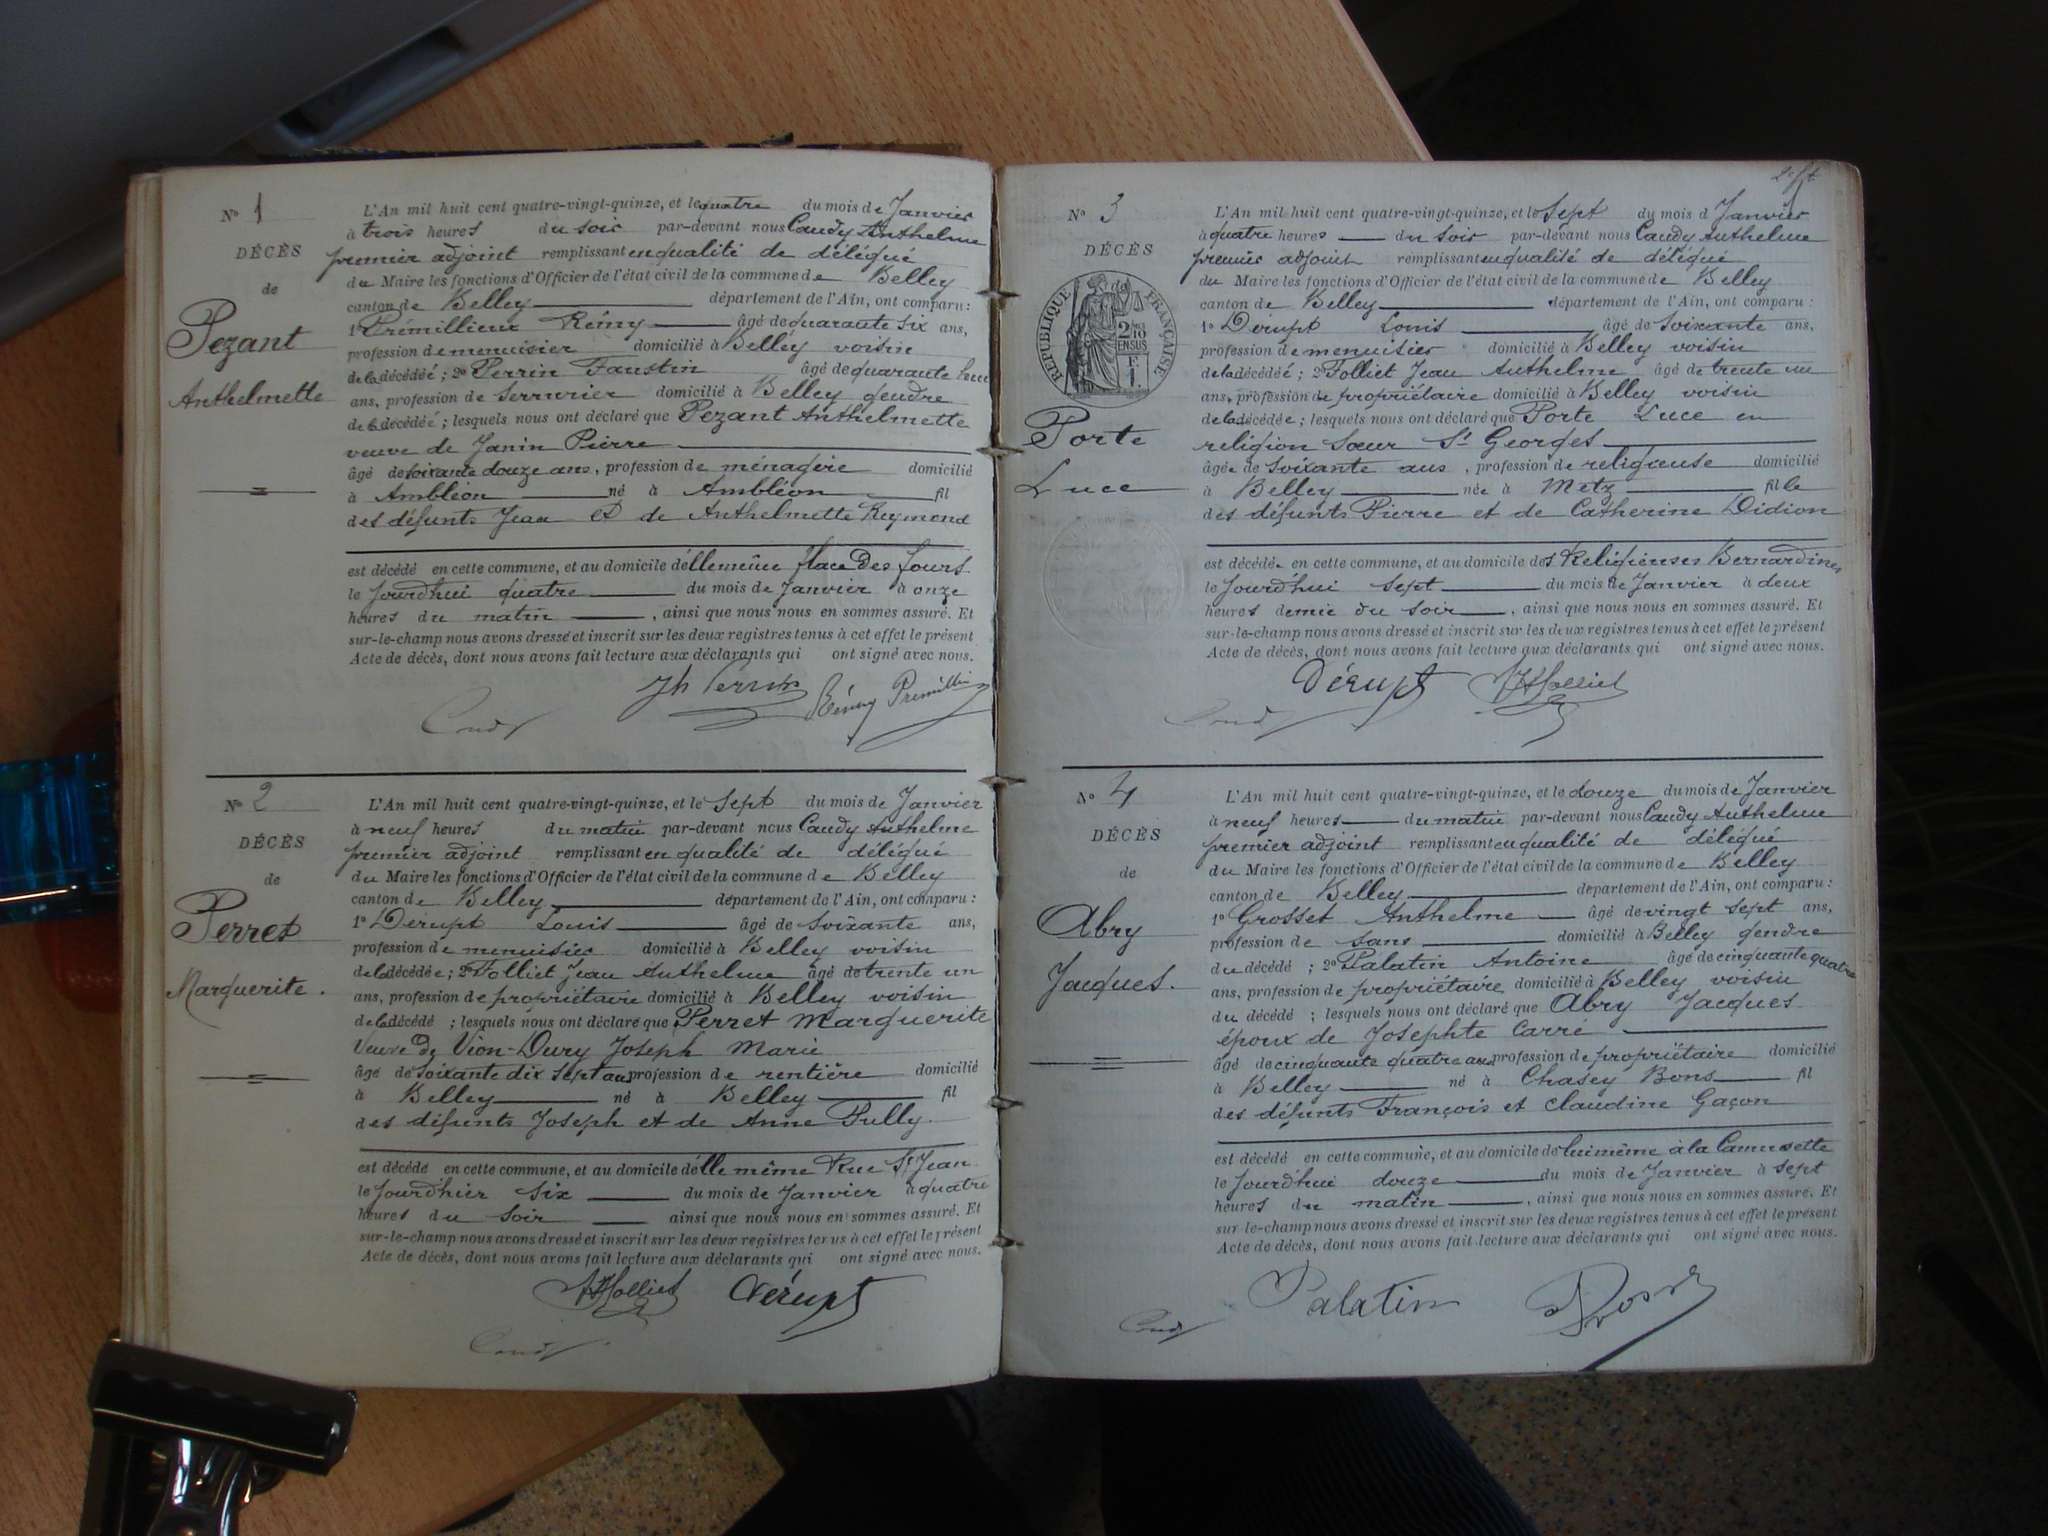 N° 1
DÉCÈS
de
Pezant
Anthelmette
L'An mil huit cent quatre-vingt-quinze, et le quatre du mois de Janvier
à trois heures du soir par-devant nous Caudy Anthelme
premier adjoint remplissant en qualité de délégué
du Maire les fonctions d'Officier de l'état civil de la commune de Belley
canton de Belley département de l'Ain, ont comparu :
1° Prémillieux Rémy âgé de quarante six ans,
profession de menuisier domicilié à Belley voisin
de la décédée ; 2° Perrin Faustin âgé de quarante
ans, profession de serrurier domicilié à Belley gendre
de la décédée ; lesquels nous ont déclaré que Pezant Anthelmette
veuve de Janin Pierre
âgé de soixante douze ans, profession de ménagère domicilié
à Ambléon né à Ambléon fil
des défunts Jean et de Anthelmette Reymond
est décédé en cette commune, et au domicile d'elle même place des fours
le jourd'hui quatre du mois de Janvier à onze
heures du matin , ainsi que nous nous en sommes assuré. Et
sur-le-champ nous avons dressé et inscrit sur les deux registres tenus à cet effet le présent
Acte de décès, dont nous avons fait lecture aux déclarants qui ont signé avec nous.
Perrin Rémy Prémillieu
Caudy
N° 2
DÉCÈS
de
Perret
Marguerite.
L'An mil huit cent quatre-vingt-quinze, et le sept du mois de Janvier
à neuf heures du matin par-devant nous Caudy Anthelme
premier adjoint remplissant en qualité de délégué
du Maire les fonctions d'Officier de l'état civil de la commune de Belley
canton de Belley département de l'Ain, ont comparu :
1° Dérupt Louis âgé de soixante ans,
profession de menuisier domicilié à Belley voisin
de la décédée ; 2° Folliet Jean Anthelme âgé de trente un
ans, profession de propriétaire domicilié à Belley voisin
de la décédé ; lesquels nous ont déclaré que Perret Marguerite
Veuve de Vion-Dury Joseph Marie
âgé de soixante dix sept ans profession de rentière domicilié
à Belley né à Belley fil
des défunts Joseph et de Anne Pully.
est décédé en cette commune, et au domicile d'elle même Rue St Jean
le jourd'hier six du mois de Janvier à quatre
heures du soir ainsi que nous nous en sommes assuré. Et
sur-le-champ nous avons dressé et inscrit sur les deux registres tenus à cet effet le présent
Acte de décès, dont nous avons fait lecture aux déclarants qui ont signé avec nous.
Folliet Dérupt
Caudy
N° 3
DÉCÈS
de
RÉPUBLIQUE FRANÇAISE
2/10
EN SUS
1 F.
Porte
Luce
L'An mil huit cent quatre-vingt-quinze, et le sept du mois d Janvier
à quatre heures du soir par-devant nous Caudy Anthelme
premier adjoint remplissant en qualité de délégué
du Maire les fonctions d'Officier de l'état civil de la commune de Belley
canton de Belley département de l'Ain, ont comparu :
1° Dérupt Louis âgé de soixante ans,
profession de menuisier domicilié à Belley voisin
de la décédée ; 2° Folliet Jean Anthelme âgé de trente un
ans, profession de propriétaire domicilié à Belley voisin
de la décédée ; lesquels nous ont déclaré que Porte Luce en
religion Sœur St Georges
âgée de soixante ans , profession de religieuse domicilié
à Belley née à Metz fille
des défunts Pierre et de Catherine Didion
est décédé en cette commune, et au domicile des Religieuses Bernardines
le jourd'hui sept du mois de Janvier à deux
heures demie du soir , ainsi que nous nous en sommes assuré. Et
sur-le-champ nous avons dressé et inscrit sur les deux registres tenus à cet effet le présent
Acte de décès, dont nous avons fait lecture aux déclarants qui ont signé avec nous.
Dérupt Folliet
Caudy
N° 4
DÉCÈS
de
Abry
Jacques.
L'An mil huit cent quatre-vingt-quinze, et le douze du mois de Janvier
à neuf heures du matin par-devant nous Caudy Anthelme
premier adjoint remplissant en qualité de délégué
du Maire les fonctions d'Officier de l'état civil de la commune de Belley
canton de Belley département de l'Ain, ont comparu :
1° Grosset Anthelme âgé de vingt sept ans,
profession de sans domicilié à Belley gendre
du décédé ; 2° Palatin Antoine âgé de cinquante quatre
ans, profession de propriétaire domicilié à Belley voisin
du décédé ; lesquels nous ont déclaré que Abry Jacques
époux de Josephte Carre
âgé de cinquante quatre ans profession de propriétaire domicilié
à Belley né à Chasey Bons fil
des défunts François et Claudine Gaçon
est décédé en cette commune, et au domicile de lui même à la Camusette
le jourd'hui douze du mois de Janvier à sept
heures du matin , ainsi que nous nous en sommes assuré. Et
sur-le-champ nous avons dressé et inscrit sur les deux registres tenus à cet effet le présent
Acte de décès, dont nous avons fait lecture aux déclarants qui ont signé avec nous.
Palatin
Caudy